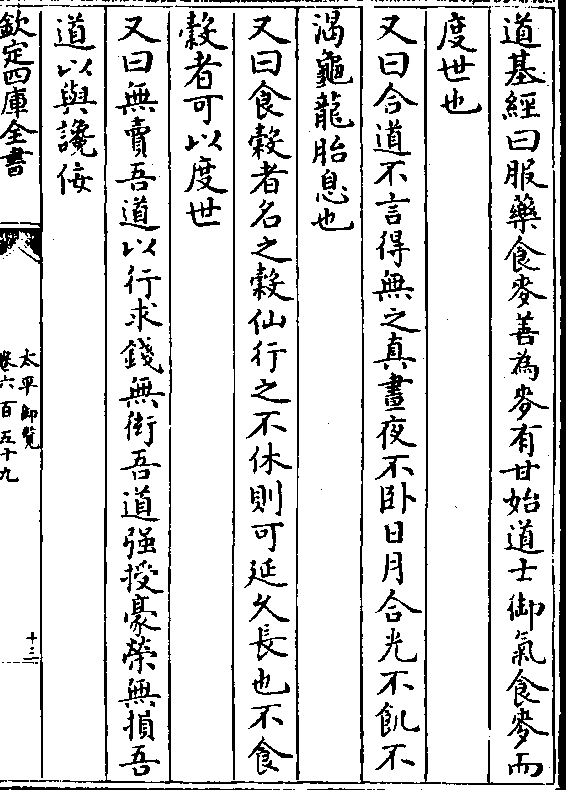 道基經曰服藥食麥善為麥有甘始道士御氣食麥而
度世也
又曰合道不言得無之真晝夜不卧日月合光不飢不
渴龜龍胎息也
又曰食穀者名之穀仙行之不休則可延久長也不食
穀者可以度世
又曰無賣吾道以行求錢無衒吾道强授豪榮無損吾
道以與讒佞
欽定四庫全書
太平御覧
卷六百五十九
十三